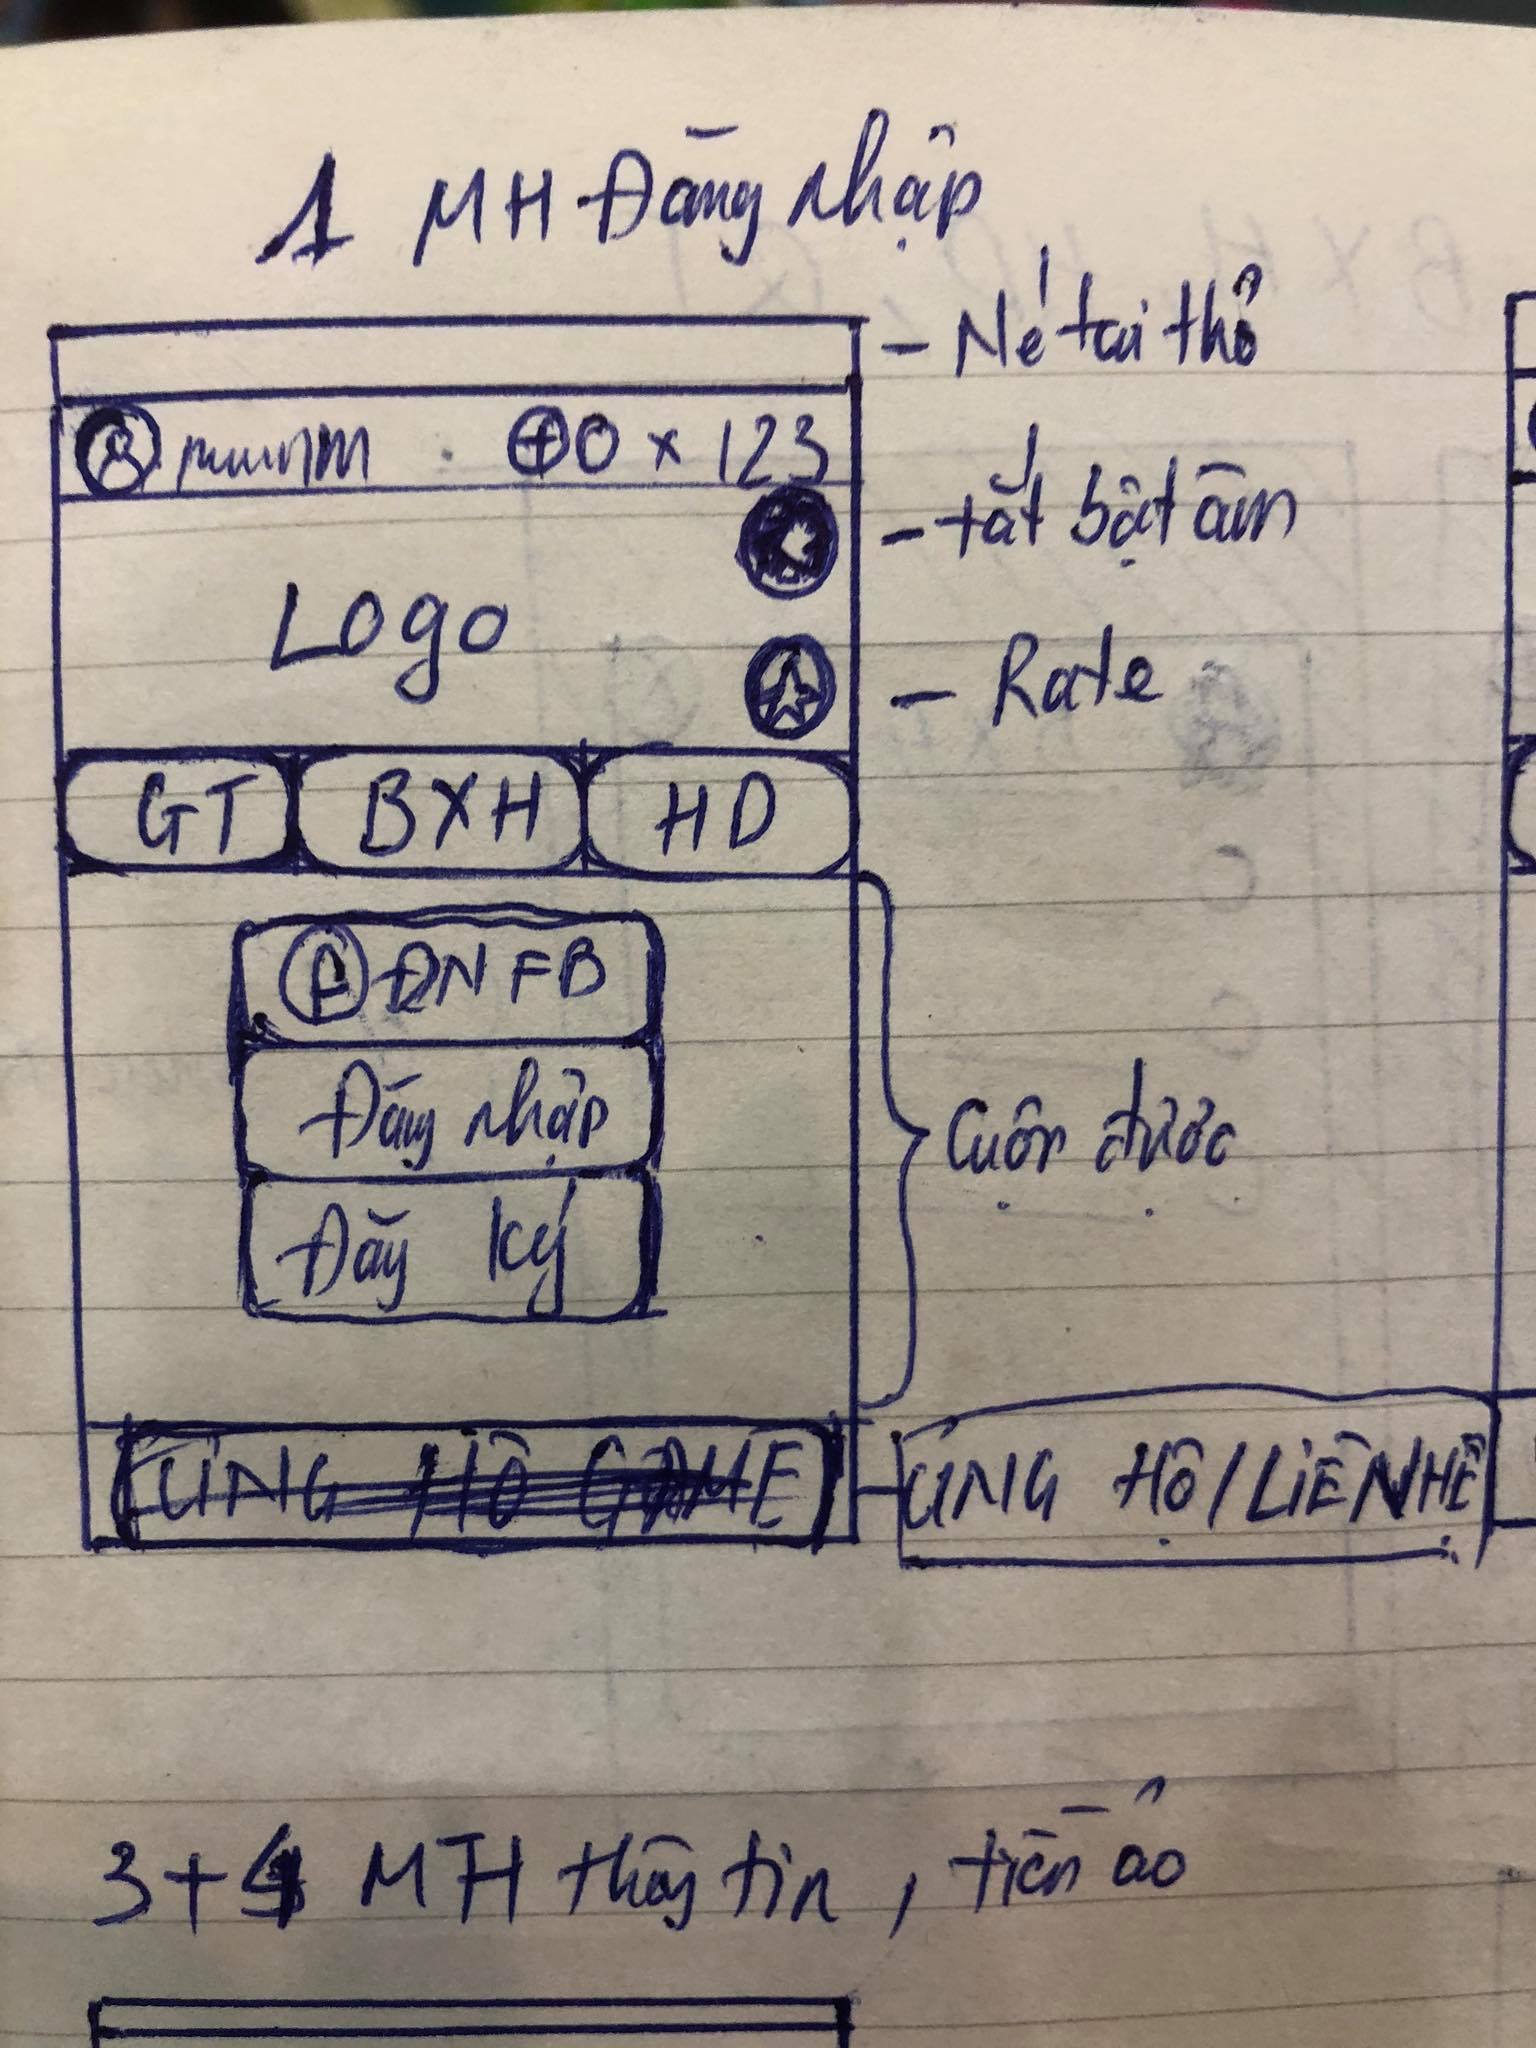 1 MH Đăng nhập
- Né tai thỏ
+0 x 123
- tắt bật âm
Logo
- Rate
GT BXH HD
F ĐN FB
Đăng nhập
Cuộn được
Đăng ký
ỦNG HỘ GAME
ỦNG HỘ/LIÊN HỆ
3+4 MH thông tin, tiền ảo